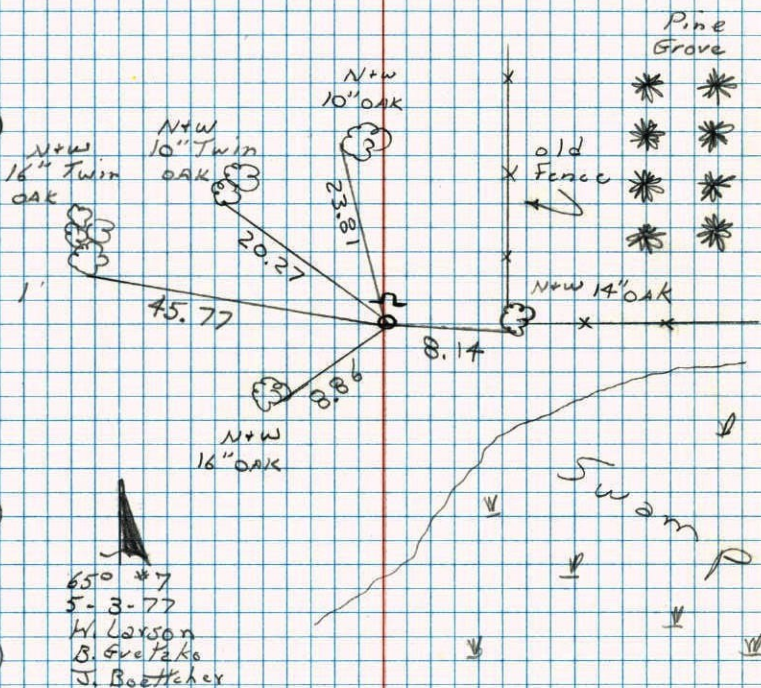 Pine
Grove
N+W
10" OAK
N+W
10" Twin
OAK
N+W
16" Twin
OAK
old
Fence
23.81
20.27
N+W 14" OAK
1'
45.77
8.14
8.86
N+W
16" OAK
Swamp
65° #7
5-3-77
W. Larson
J. Boettcher